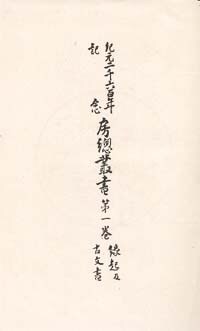 紀元二千六百年
記念
房總叢書第一巻
縁起及
古文書